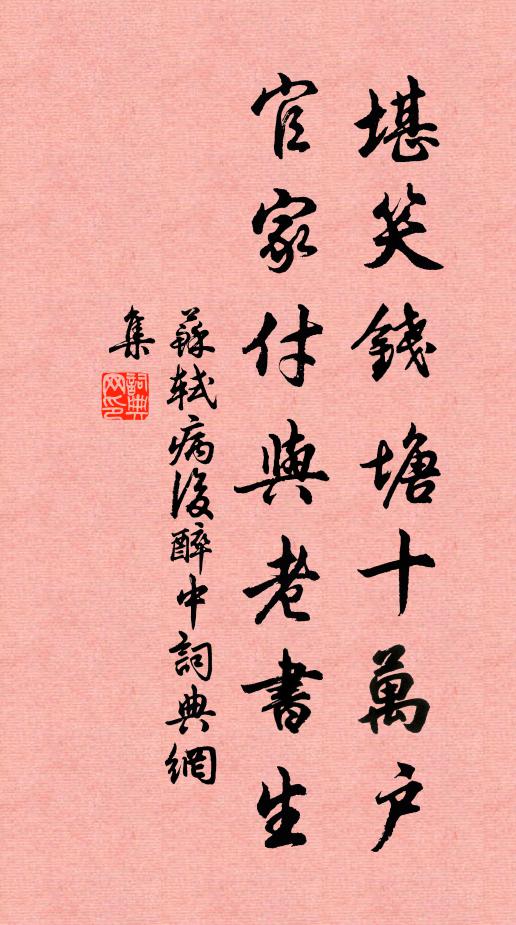 堪笑錢塘十萬戶
官家付與老書生
蘇軾病後醉中詞典網
集
詞典網印